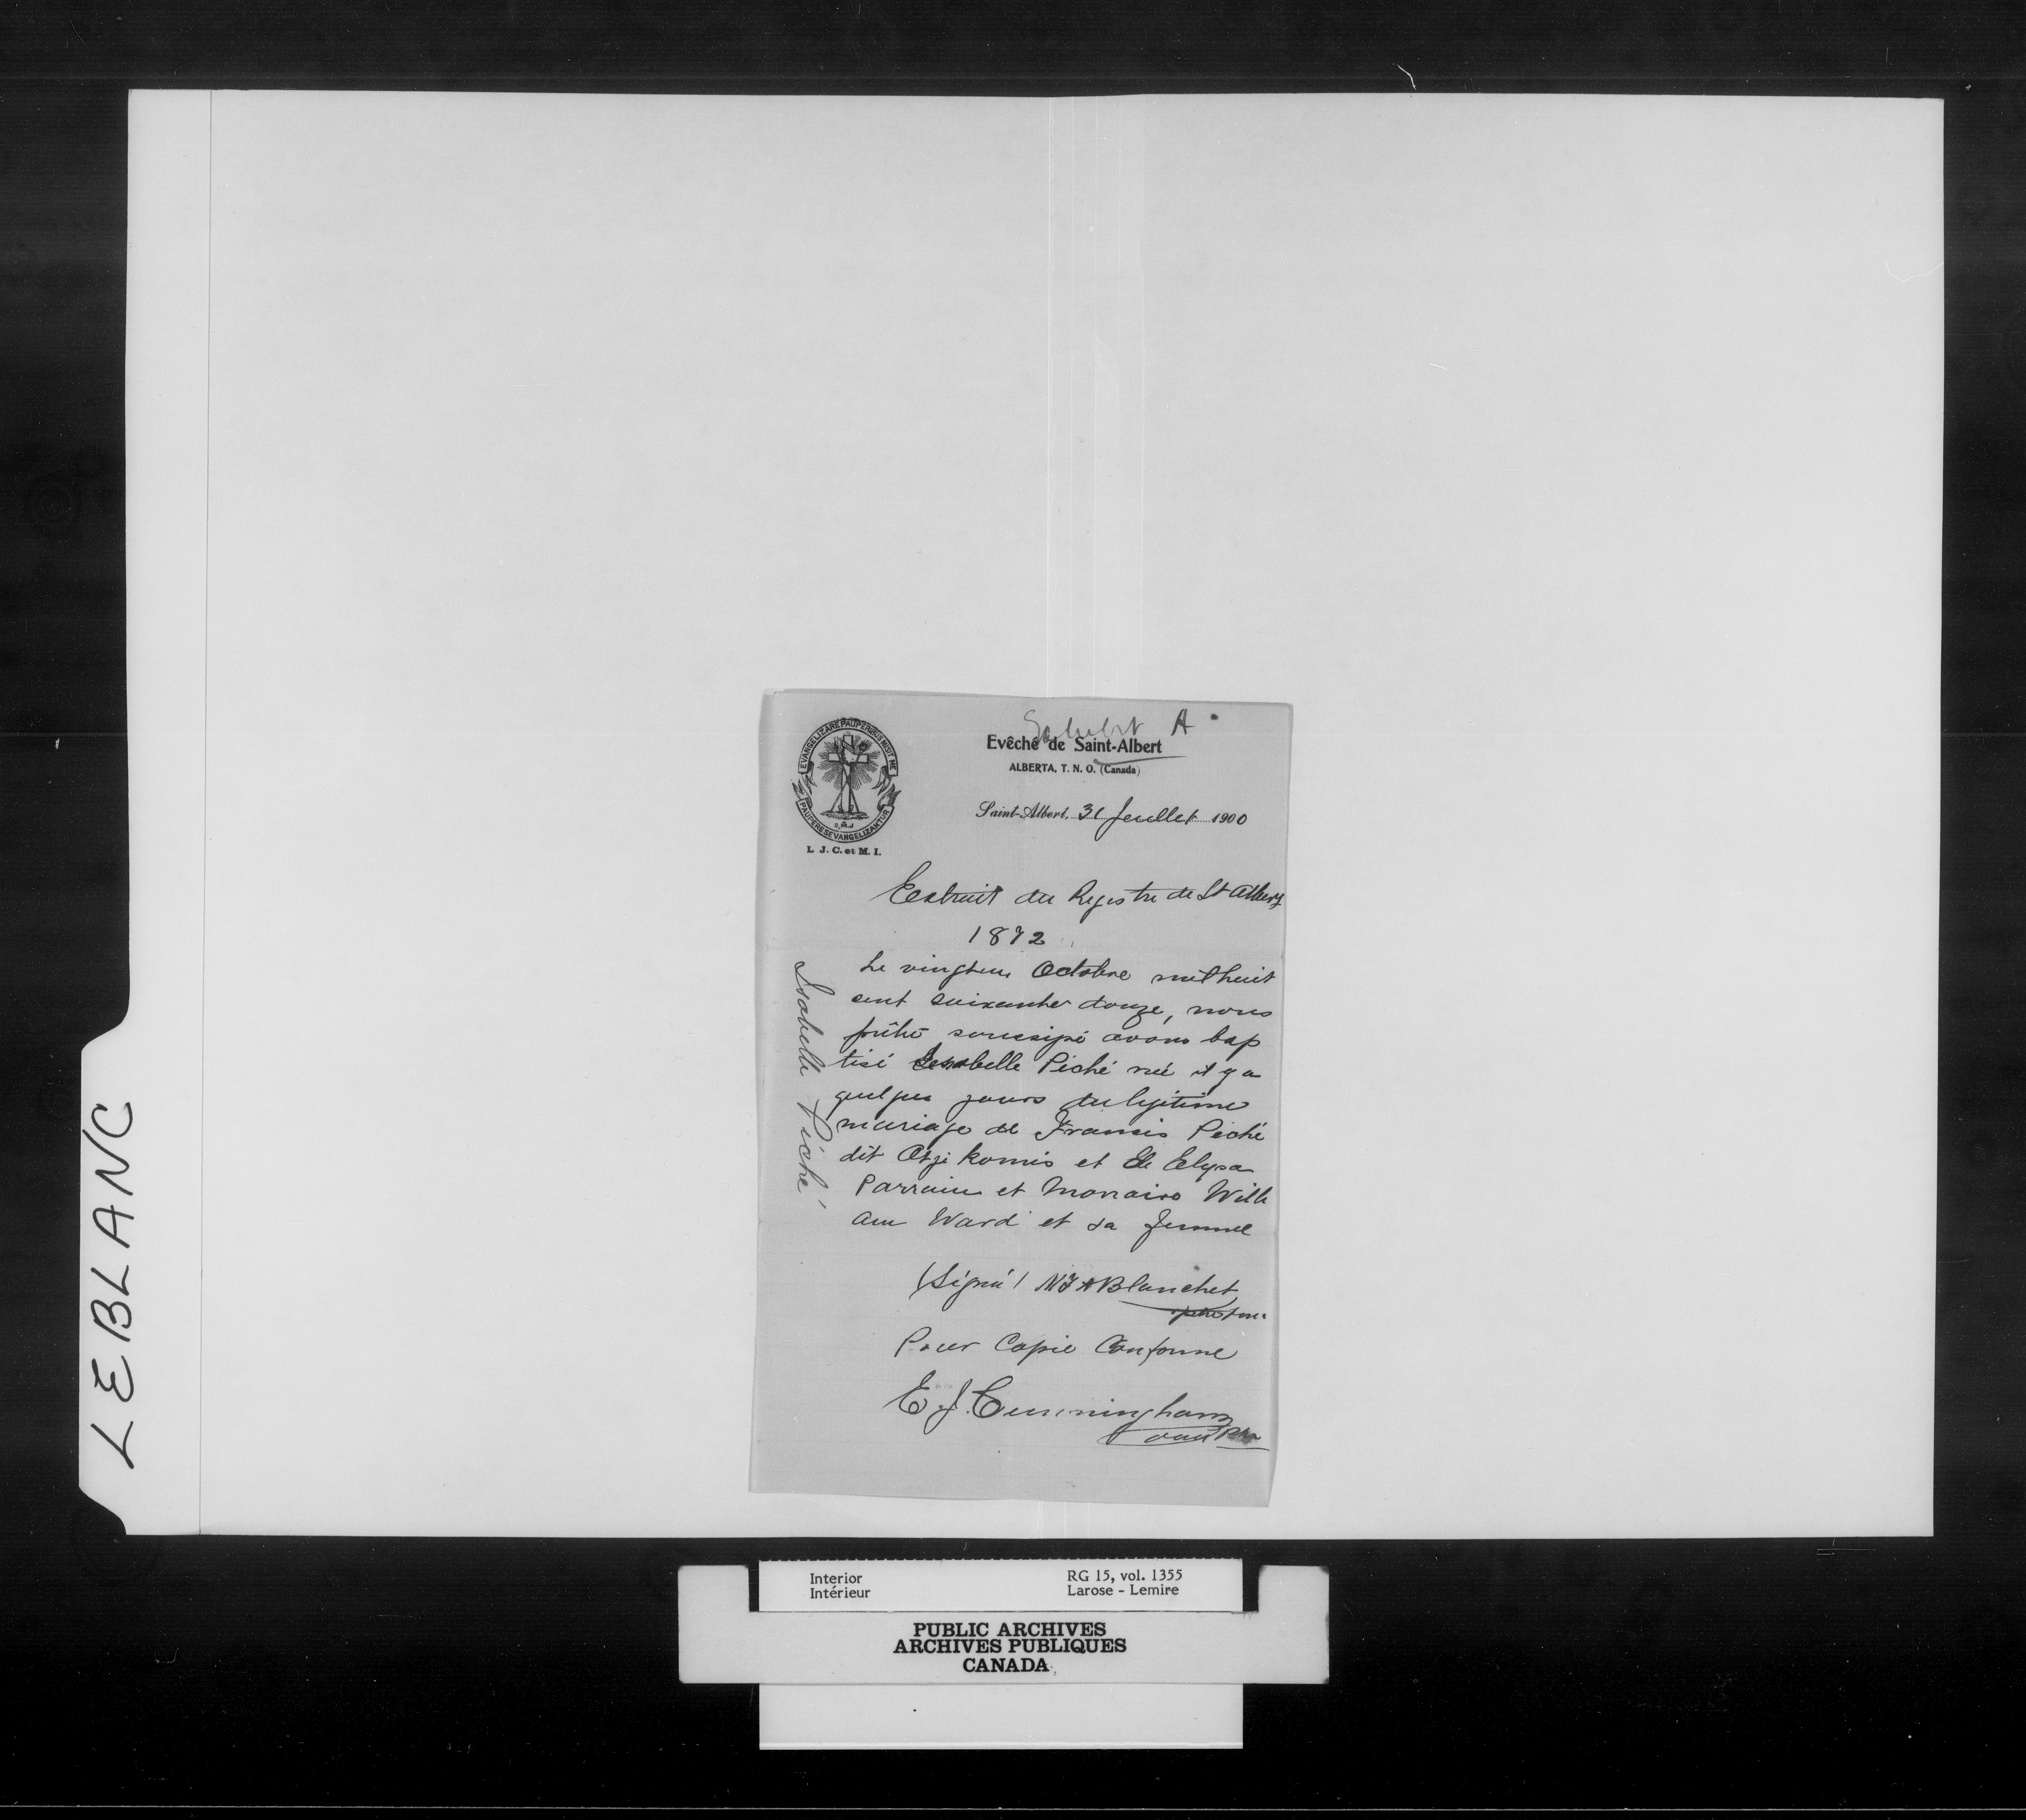 LEBLANC
Exhibit A
EVANGELIZARE PAUPERIBUS MISIT ME
PAUPERES EVANGELIZANTUR
L. J. C. et M. I.
Evêché de Saint-Albert
ALBERTA, T. N. O. (Canada)
Saint-Albert, 31 Juillet 1900
Extrait du Registre de St Albert
1872
Le vingt Octobre mil huit
cent soixante douze, nous
prêtre soussigné avons bap
tisé Isabelle Piché née il y a
quelques jours du légitime
mariage de Francis Piché
dit Otzikomis et de Elysa
Parrain et Marraine Willi
am Ward et sa femme
(Signé) Blanchet
Pour Copie Conforme
E J. Cunningham
Isabelle Piché
Interior
Intérieur
RG 15, vol. 1355
Larose - Lemire
PUBLIC ARCHIVES
ARCHIVES PUBLIQUES
CANADA